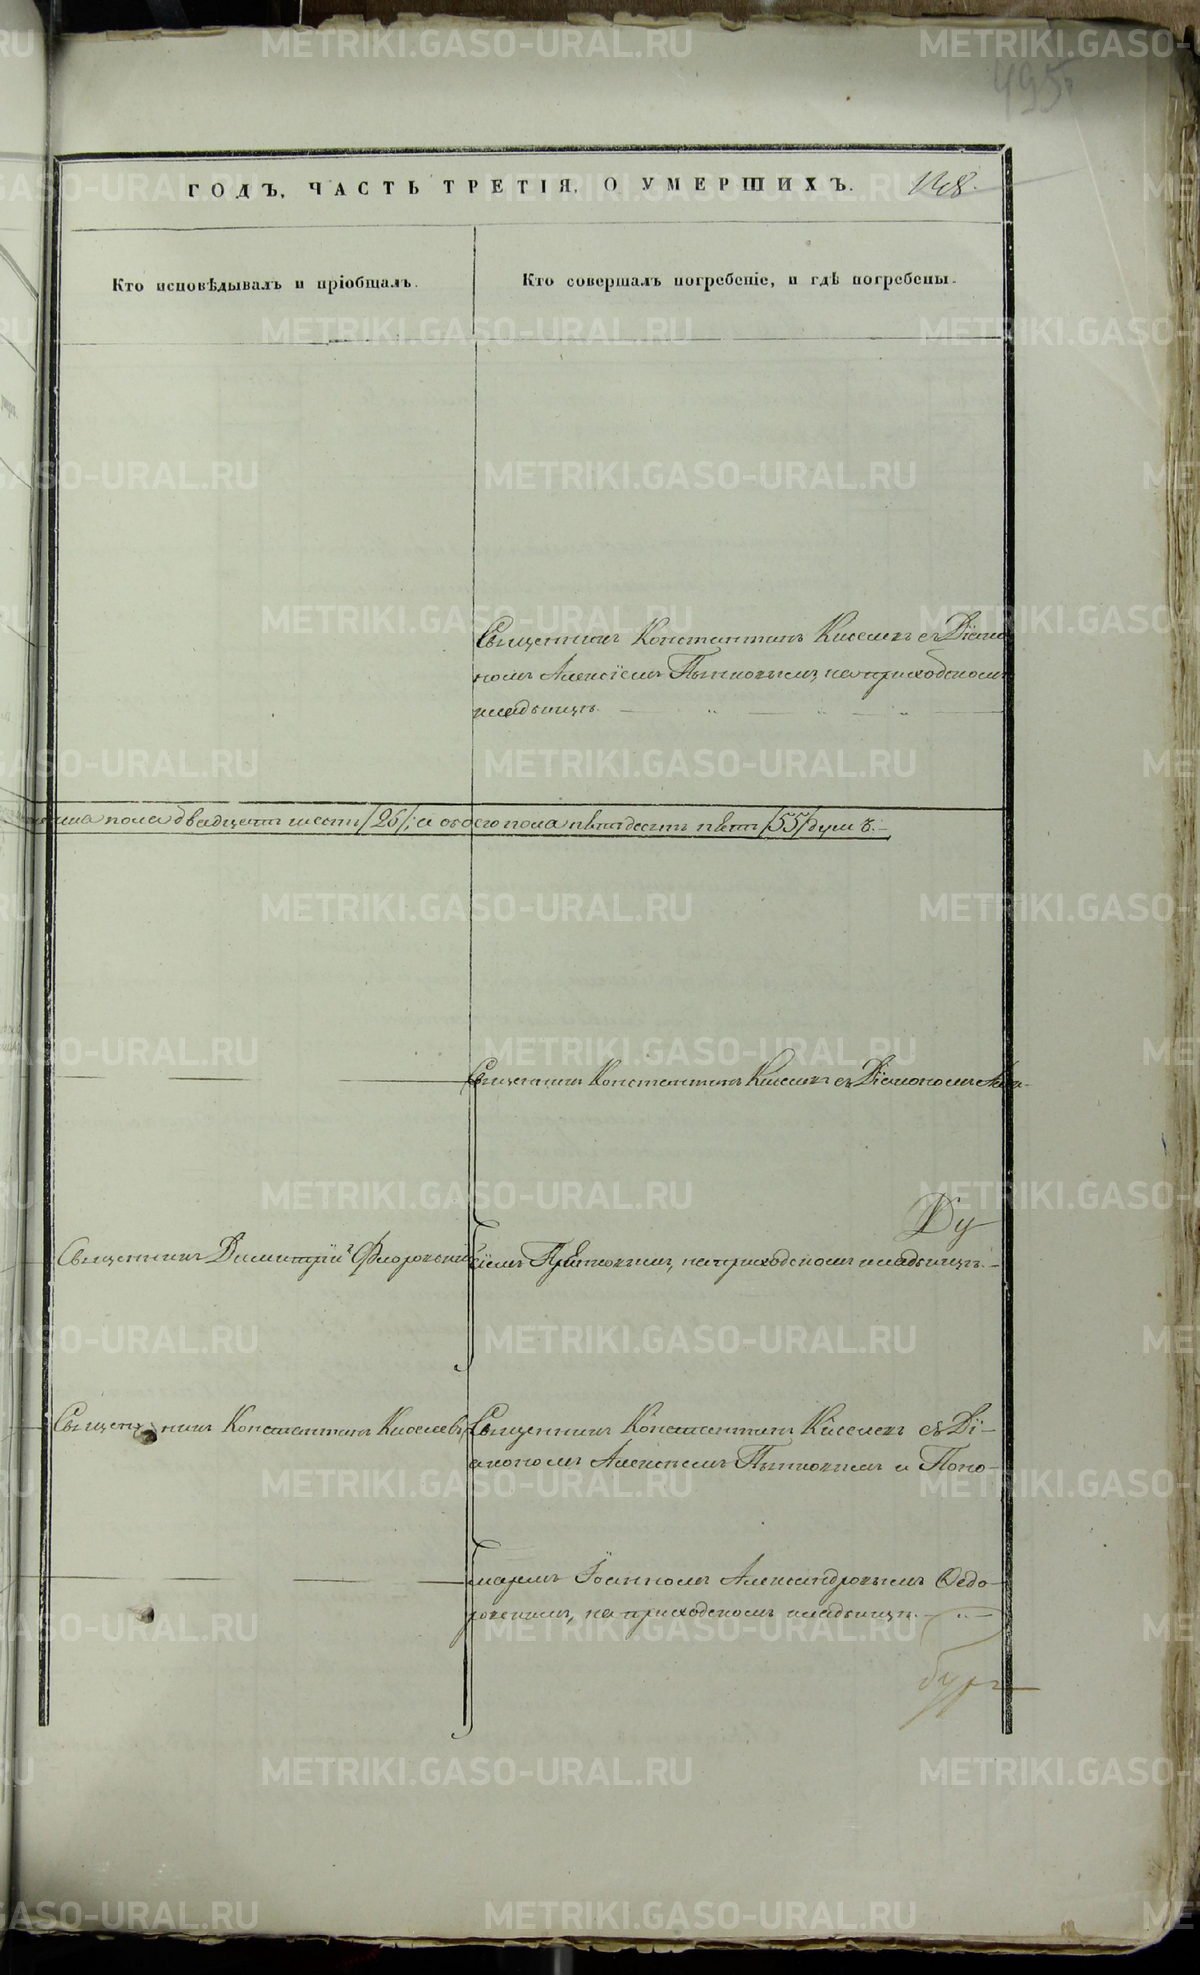 495
ГОДЪ, ЧАСТЬ ТРЕТІЯ, О УМЕРШИХЪ. 128.
Кто исповѣдывалъ и пріобщалъ.
Кто совершалъ погребеніе, и гдѣ погребены.
Священникъ Константинъ Киселевъ съ Діако
номъ Алексіемъ Пѣтновымъ, на приходскомъ
кладбищѣ.
пола двадцать шесть /26/, а обоего пола пятьдесятъ пять /55/ душъ.
Священникъ Константинъ Киселевъ съ Діакономъ Алек-
Ду
Священникъ Димитрій Флоровскій
сіемъ на приходскомъ кладбищѣ.
Священникъ Константинъ Киселевъ
Священникъ Константинъ Киселевъ съ Ді-
акономъ Алексіемъ Пѣтновымъ и Поно-
маремъ Іоанномъ Александровымъ Ѳедо-
ровскимъ, на приходскомъ кладбищѣ.
METRIKI.GASO-URAL.RU